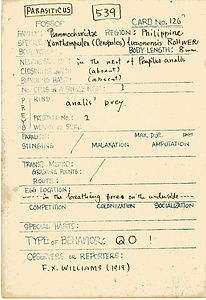 PARASITICUS 539
FOSSOR CARD No. 126
FAMILY: Psammocharidae REGION: Philippine
SPECIES: Xanthampulex (Ceropales) luzonensis ROHWER
BODY LENGTH: 8 mm.
in the nest of Pseudulus analis
CLOSING (absent)
BURROWING HABIT: (absent)
No. CELLS IN A SINGLE NEST: 1
P KIND: analis' prey.
R
E PREYTER No.: 1
Y
PARALYZE: MAX. DUR. DAYS
STINGING / MALAXATION AMPUTATION
TRANSP. METHOD:
GRASPING POINTS:
ROUTE:
EGG LOCATION:
in the breathing pores on the underside
COMPETITION COLONIZATION SOCIALIZATION
SPECIAL HABITS:
TYPE OF BEHAVIOR: QO!
OBSERVERS OR REPORTERS:
F.X. WILLIAMS (1919)